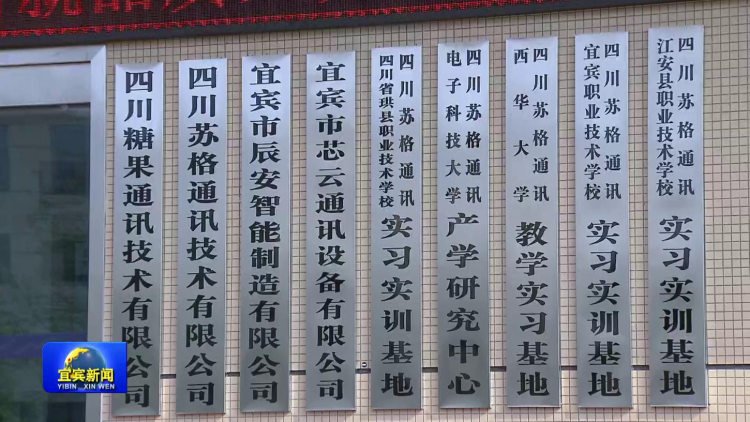 四川糖果通讯技术有限公司
四川苏格通讯技术有限公司
宜宾市辰安智能制造有限公司
宜宾市芯云通讯设备有限公司
四川苏格通讯
四川省珙县职业技术学校
实习实训基地
四川苏格通讯
电子科技大学
产学研究中心
四川苏格通讯
西华大学
教学实习基地
四川苏格通讯
宜宾职业技术学校
实习实训基地
四川苏格通讯
江安县职业技术学校
实习实训基地
宜宾新闻
YIBIN XIN WEN